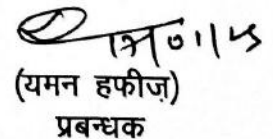 (यमन हफीज़)
प्रबन्धक